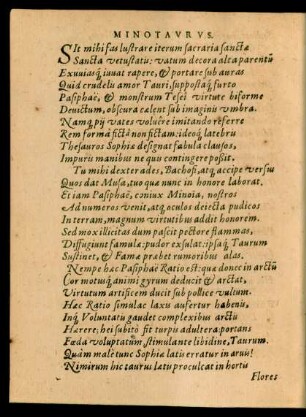 MINOTAVRVS.
SIt mihi fas lustrare iterum sacraria sanctæ
Sancta vetustatis: vatum decora alta parentũ
Exuuiasq; iuuat rapere, & portare sub auras
Quid crudelis amor Tauri, suppostaq; furto
Pasiphaë, & monstrum Tesei virtute biforme
Deuictum, obscura celent sub imaginis vmbra.
Namq; pij vates volucre imitando referre
Rem formã fictã non fictam: ideoq; latebris
Thesauros Sophiæ designat fabula clausos,
Impuris manibus ne quis contingere possit.
Tu mihi dexter ades, Bachofi, atq; accipe versus
Quos dat Musa, tuo quæ nunc in honore laborat.
Et iam Pasiphaë, coniux Minoia, nostros
Ad numeros venit, atq; oculos deiecta pudicos
In terram, magnum virtutibus addit honorem.
Sed mox illicitas dum pascit pectore flammas,
Diffugiunt famulæ: pudor exsulat: ipsaq; Taurum
Sustinet, & Famæ præbet rumoribus alas.
Nempe hæc Pasiphaë Ratio est: quæ donec in arctũ
Cor motusq; animi gyrum deducit & arctat,
Virtutum artificem ducit sub pollice vultum.
Hæc Ratio simulac laxis aufertur habenis,
Inq; Voluntatis gaudet complexibus arctis
Hærere; hei subitò fit turpis adultera: portans
Fæda voluptatum stimulante libidine, Taurum.
Quàm male tunc Sophiæ latis erratur in aruis!
Nimirum hic taurus latis proculcat in hortis
Flores